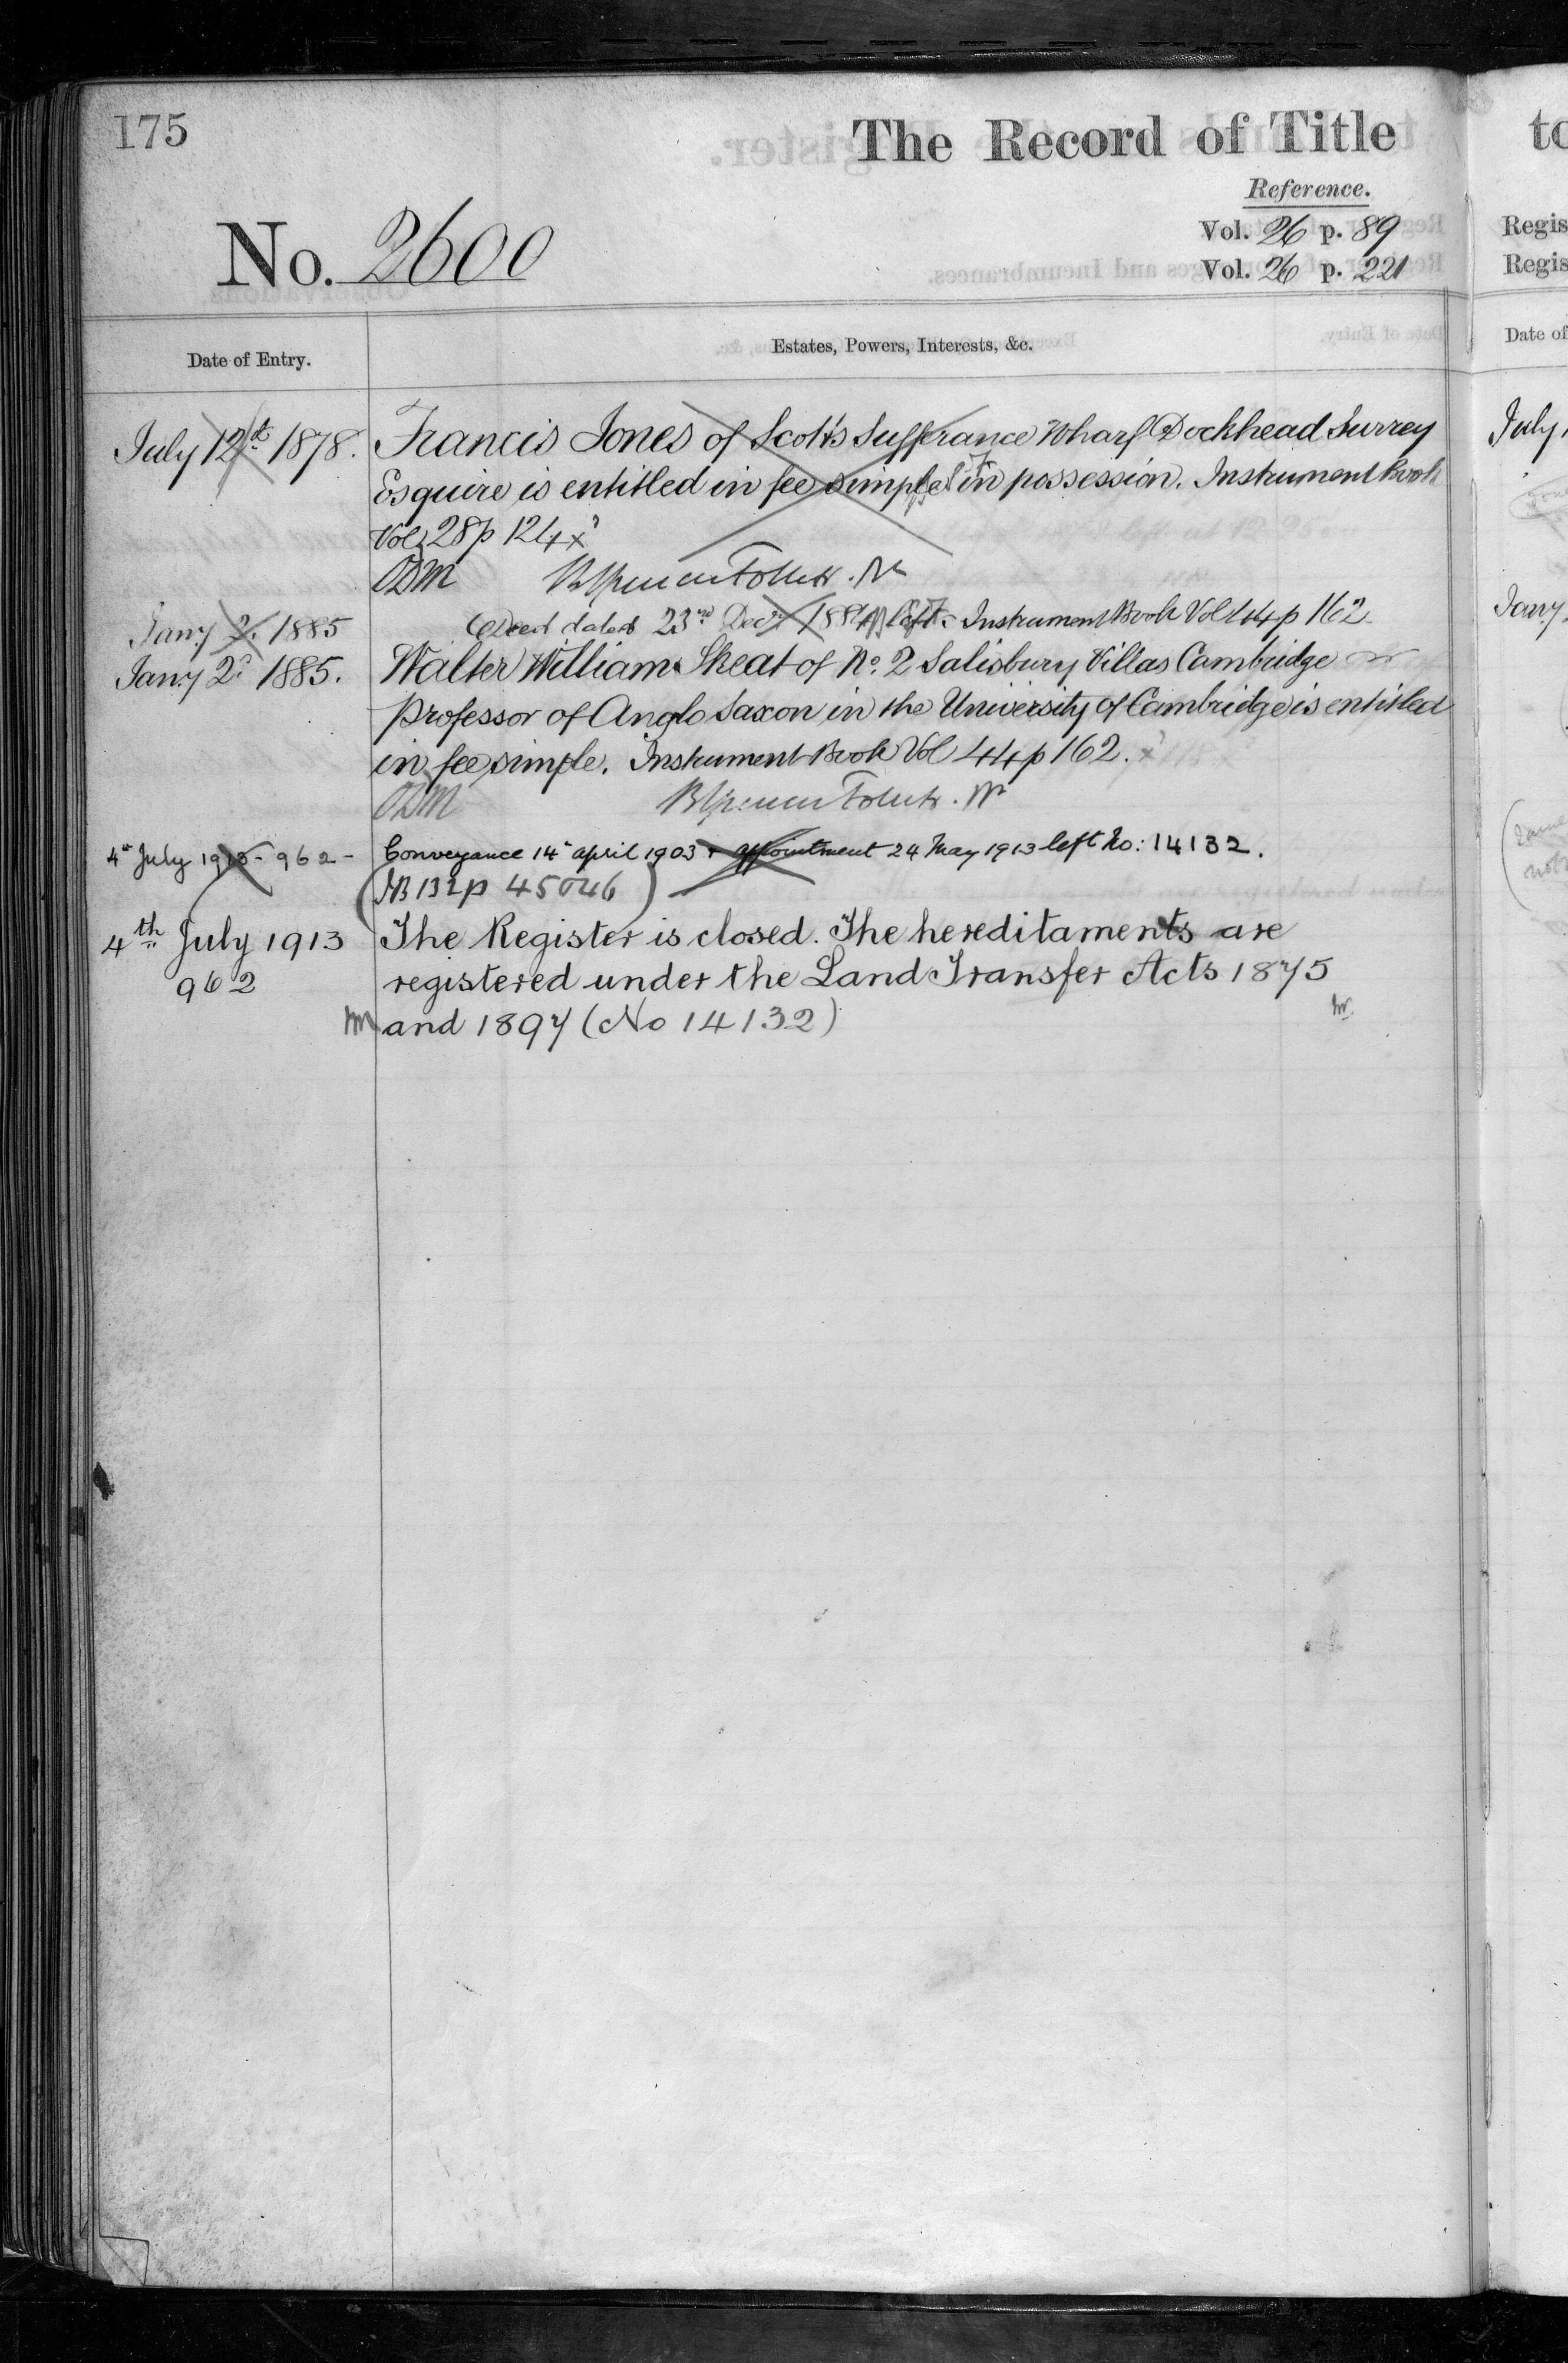 175
The Record of Title
Reference.
Vol. 26 p. 89
Vol. 26 p. 221
No. 2600
Date of Entry.
Estates, Powers, Interests, &c.
July 12th 1878. Francis Jones of Scott's Sufferance Wharf Dockhead Surrey
Esquire is entitled in fee simple in possession. Instrument Book
Vol 28 p 124
ODM
Jany 2. 1885 Deed dated 23rd Decr 1884 left. Instrument Book Vol 44 p 162
Jany 2d 1885. Walter William Skeat of No. 2 Salisbury Villas Cambridge
Professor of Anglo Saxon in the University of Cambridge is entitled
in fee simple. Instrument Book Vol 44 p 162.
ODM
4th July 1913 - 962 - Conveyance 14th april 1903 + appointment 24 May 1913 left No: 14132.
(IB 132 p 45 & 46)
4th July 1913 The Register is closed. The hereditaments are
962 registered under the Land Transfer Acts 1875
and 1897 (No 14132)
to
Regis
Regis
Date of
July
Jany